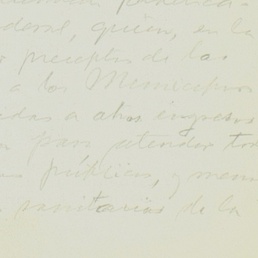 federal, quien, en la
preceptos de los
a los Municipios
idas a otros ingresos
para atender to
públicos, y
sanitarias de la